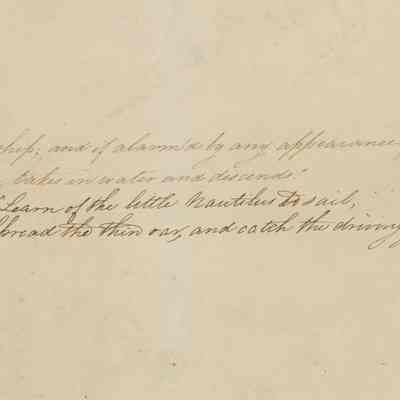 ship; and if alarm'd by any appearance
takes in water and descends."
"Learn of the little Nautilus to sail,
Spread the thin oar, and catch the driving